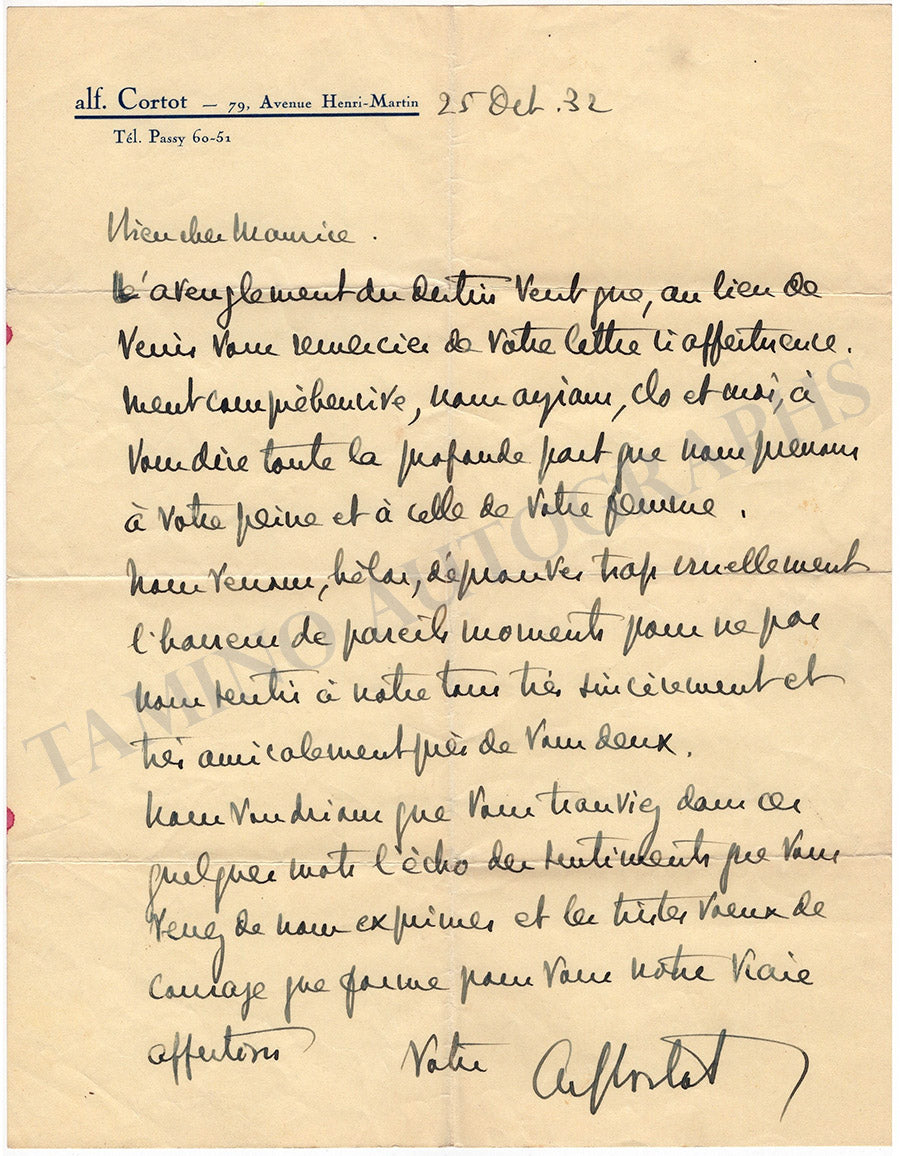 alf. Cortot — 79, Avenue Henri-Martin 25 Oct. 32
Tél. Passy 60-51
Mien cher Maurice.
L'aveuglement du destin veut que, au lieu de
venir vous remercier de votre lettre si affectueuse.
ment compréhensive, nous ayions, Clo et moi, à
vous dire toute la profonde part que nous prenons
à votre peine et à celle de votre femme.
Nous venons, hélas, d'éprouver trop cruellement
l'horreur de pareils moments pour ne pas
nous sentir à notre tour très sincèrement et
très amicalement près de vous deux.
Nous voudrions que vous trouviez dans ces
quelques mots l'écho des sentiments que vous
venez de nous exprimer et les tristes voeux de
courage que forme pour vous notre vraie
affection
Votre Alf Cortot
TAMINO AUTOGRAPHS